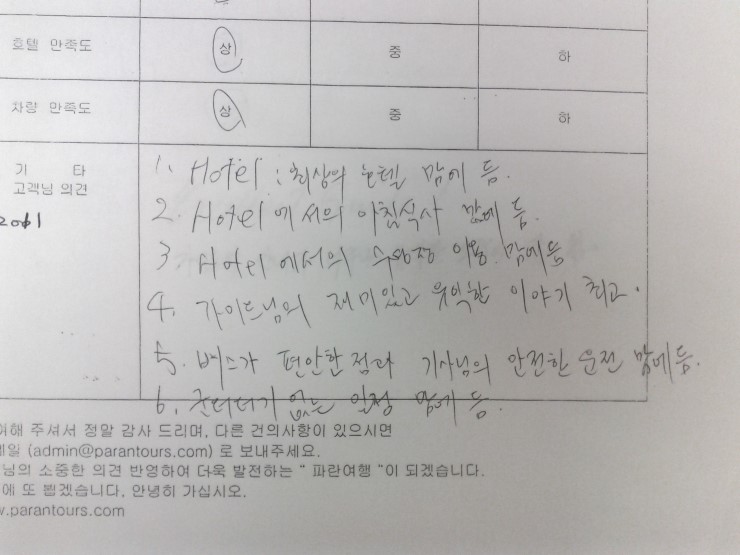 호텔 만족도 상 중 하
차량 만족도 상 중 하
기 타
고객님 의견
2061
1. Hotel : 최상의 호텔 맘에 듬.
2. Hotel에서의 아침식사 맘에 듬.
3. Hotel에서의 수영장 이용 맘에듬
4. 가이드님의 재미있고 유익한 이야기 최고.
5. 버스가 편안한점과 기사님의 안전한 운전 맘에듬.
6. 군더더기 없는 일정 맘에 듬.
여해 주셔서 정말 감사 드리며, 다른 건의사항이 있으시면
메일 (admin@parantours.com) 로 보내주세요.
님의 소중한 의견 반영하여 더욱 발전하는 “ 파란여행 “이 되겠습니다.
에 또 뵙겠습니다. 안녕히 가십시오.
w.parantours.com